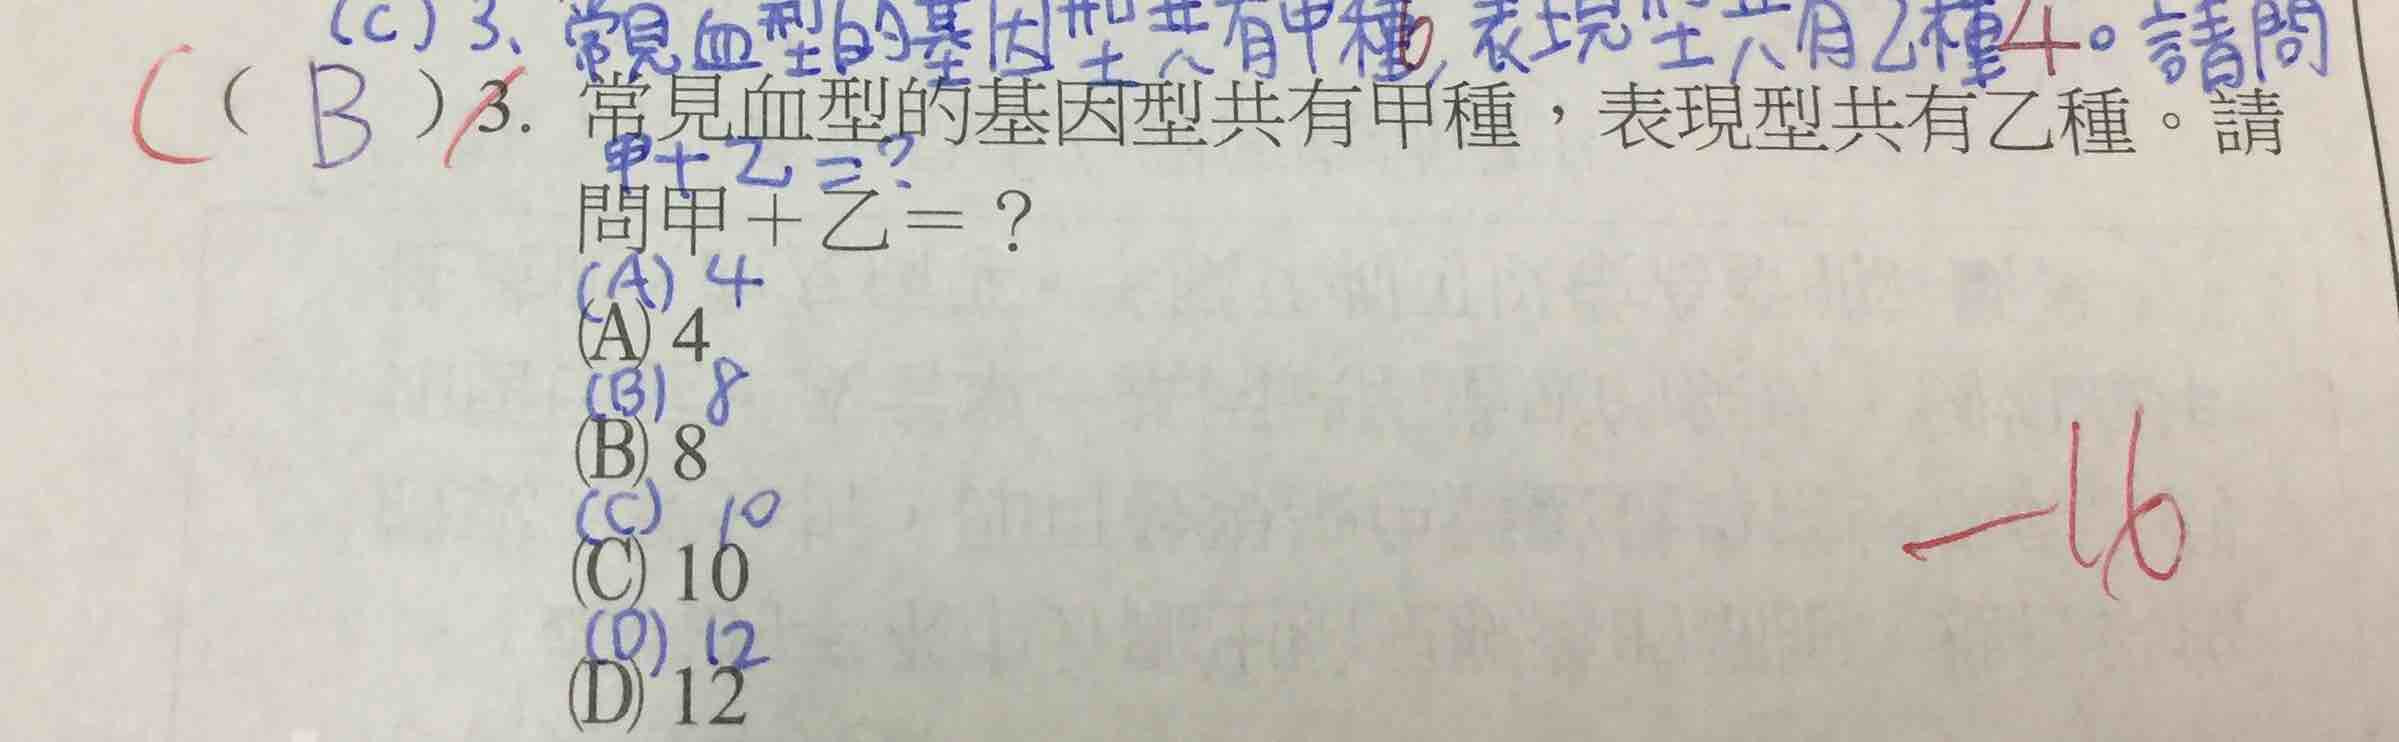 (C) 3、常見血型的基因型共有甲種6,表現型共有乙種4。請問
C(B)3. 常見血型的基因型共有甲種，表現型共有乙種。請
甲+乙=?
問甲＋乙＝？
(A) 4
(A) 4
(B) 8
(B) 8
(C) 10
(C) 10
-16
(D) 12
(D) 12